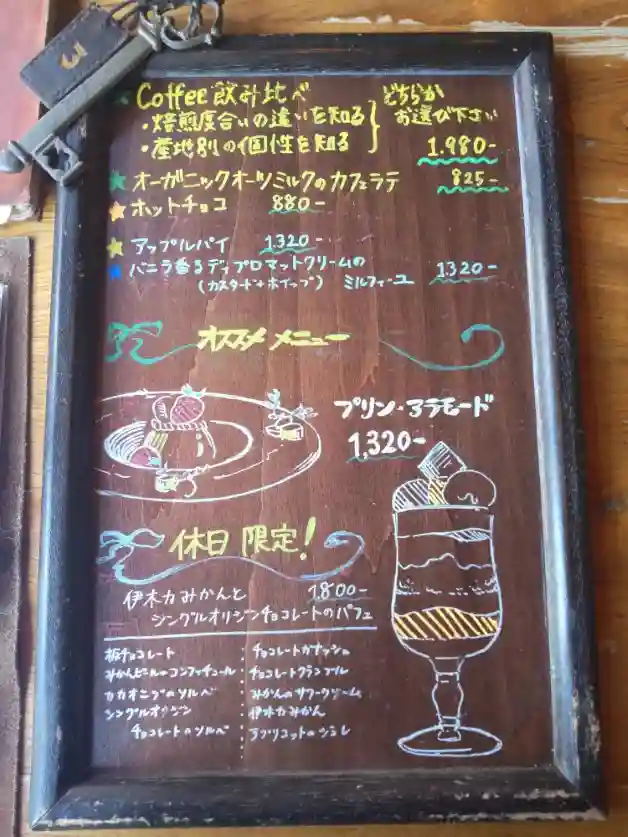 3
Coffee 飲み比べ どちらか
・焙煎度合いの違いを知る お選び下さい
・産地別の個性を知る 1.980-
オーガニックオーツミルクのカフェラテ 825-
ホットチョコ 880-
アップルパイ 1320-
バニラ香るディプロマットクリームの
(カスタード+ホイップ) ミルフィーユ 1320-
オススメ メニュー
プリン・アラモード
1,320-
休日 限定!
伊木力みかんと 1.800-
シングルオリジンチョコレートのパフェ
板チョコレート チョコレートガナッシュ
みかんピールのコンフィチュール チョコレートクランブル
カカオニブのソルベ みかんのサワークリーム
シングルオリジン 伊木力みかん
チョコレートのソルベ アプリコットのジュレ